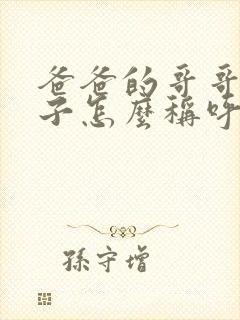 爸爸的哥哥
子怎麼稱呼
孫守增